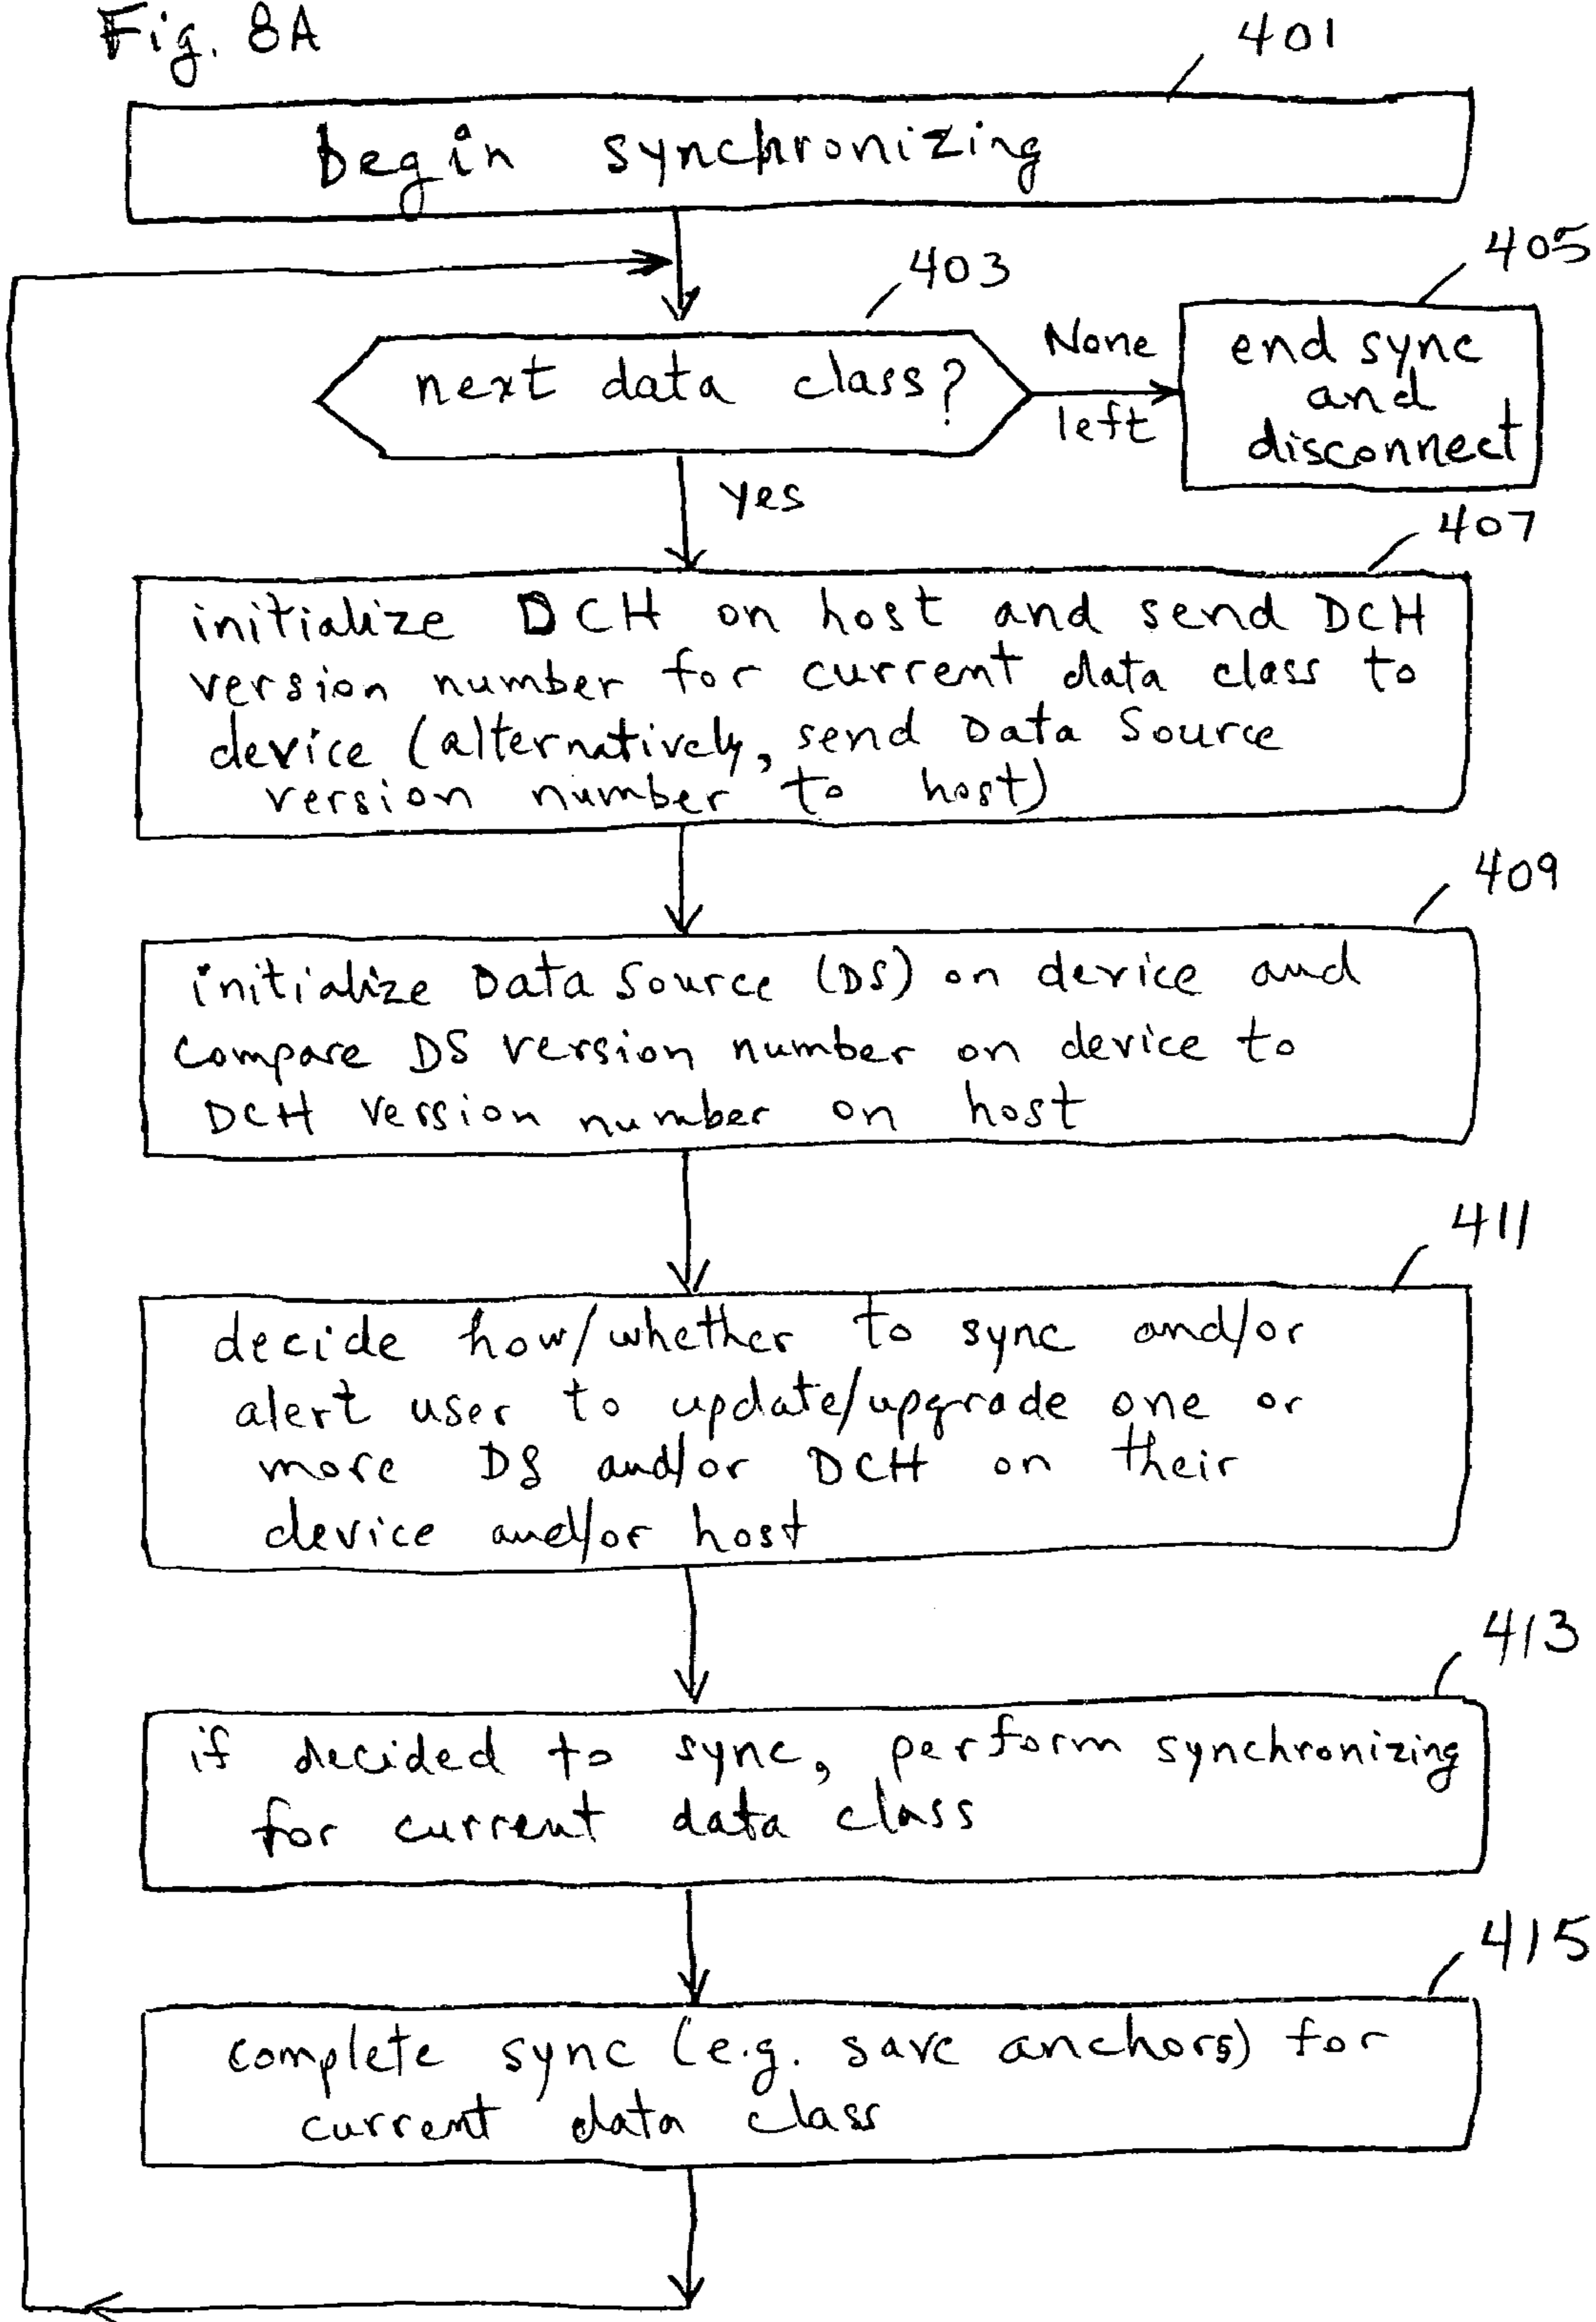 Fig. 8A
401
begin synchronizing
403
405
next data class?
None
left
end sync
and
disconnect
yes
407
initialize DCH on host and send DCH
version number for current data class to
device (alternatively, send Data Source
version number to host)
409
initialize Data Source (DS) on device and
compare DS version number on device to
DCH version number on host
411
decide how/whether to sync and/or
alert user to update/upgrade one or
more DS and/or DCH on their
device and/or host
413
if decided to sync, perform synchronizing
for current data class
415
complete sync (e.g. save anchors) for
current data class